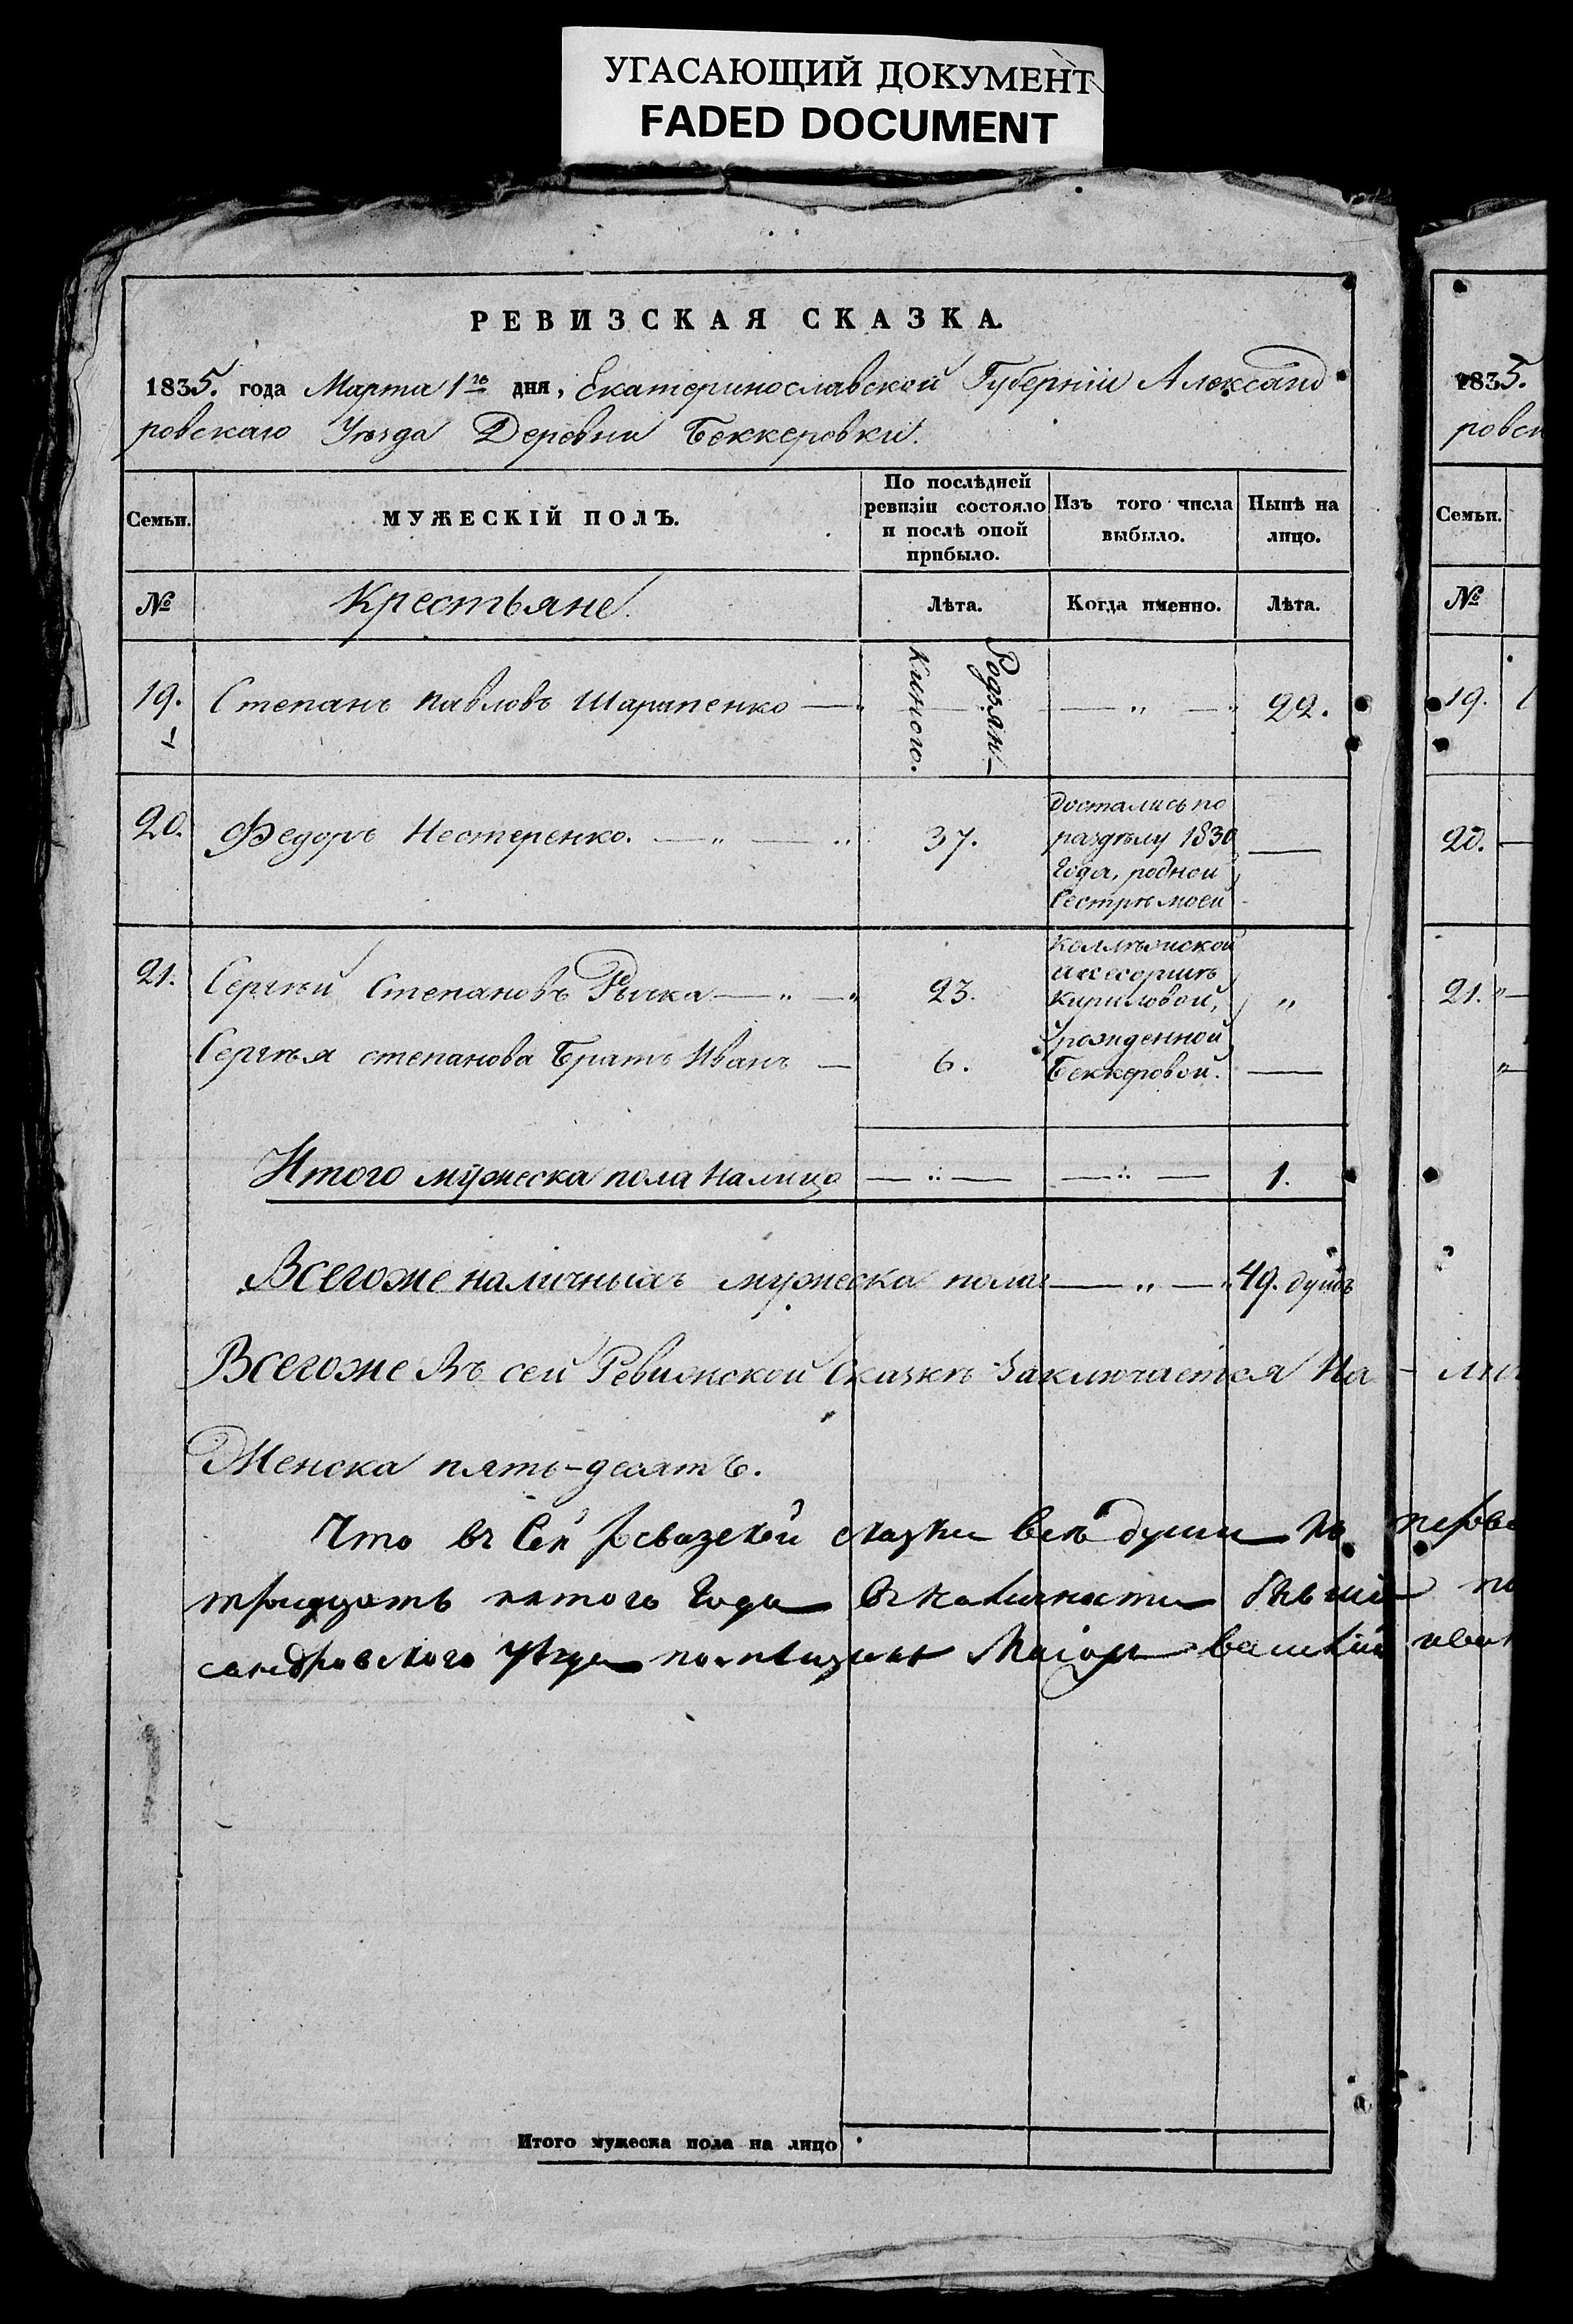 УГАСАЮЩИЙ ДОКУМЕНТ
FADED DOCUMENT
РЕВИЗСКАЯ СКАЗКА.
1835. года Марта 1го дня, Екатеринославской Губерніи Александ
ровскаго Уѣзда Деревни Беккеровки.
Семьи.
МУЖЕСКІЙ ПОЛЪ.
По послѣдней
ревизіи состояло
и послѣ оной
прибыло.
Изъ того числа
выбыло.
Нынѣ на
лицо.
№
Крестьяне.
Лѣта.
Когда именно.
Лѣта.
19. Степанъ Павловъ Шарапенко — " — " 22.
20. Федоръ Нестеренко. — " — " 37.
Достались по
раздѣлу 1830
Года, родной
Сестрѣ моей
21. Сергѣй Степановъ — " — " 23. "
Сергѣя степанова Братъ Иванъ — 6. —
Коллежской
Ассесоршѣ
Кириловой,
урожденной
Беккеровой.
Итого мужеска пола налицо — " — — " — 1.
Всегоже наличныхъ мужеска пола — " — " 49. душъ
Всегоже Въ сей Ревижской Сказкѣ Заключается На - ли
Женска пять-десятъ.
Что въ Сей сказки всѣ души
тридцать пятого Года
сандровского Маіоръ
Итого мужеска пола на лицо
1835.
ровск
Семьи.
№
19.
20. —
21. " —
" —